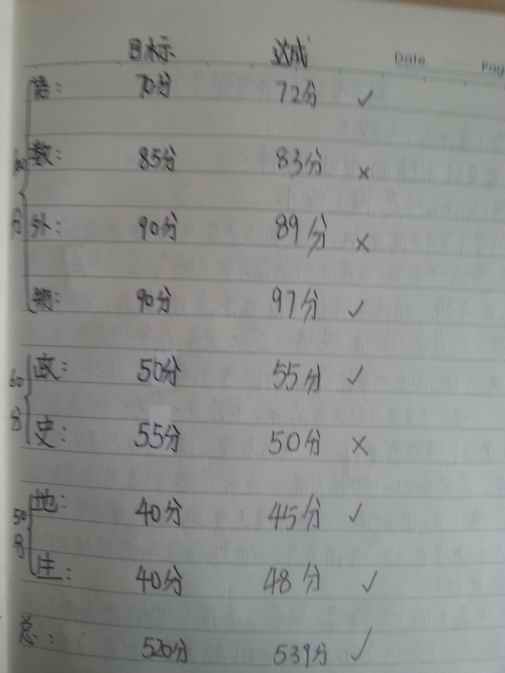 Date
Pag
目标 达成
语: 70分 72分 ✓
数: 85分 83分 ×
外: 90分 89分 ×
90分 97分 ✓
政: 50分 55分 ✓
史: 55分 50分 ×
地: 40分 45分 ✓
生: 40分 48分 ✓
总: 520分 539分 ✓
60分
50分